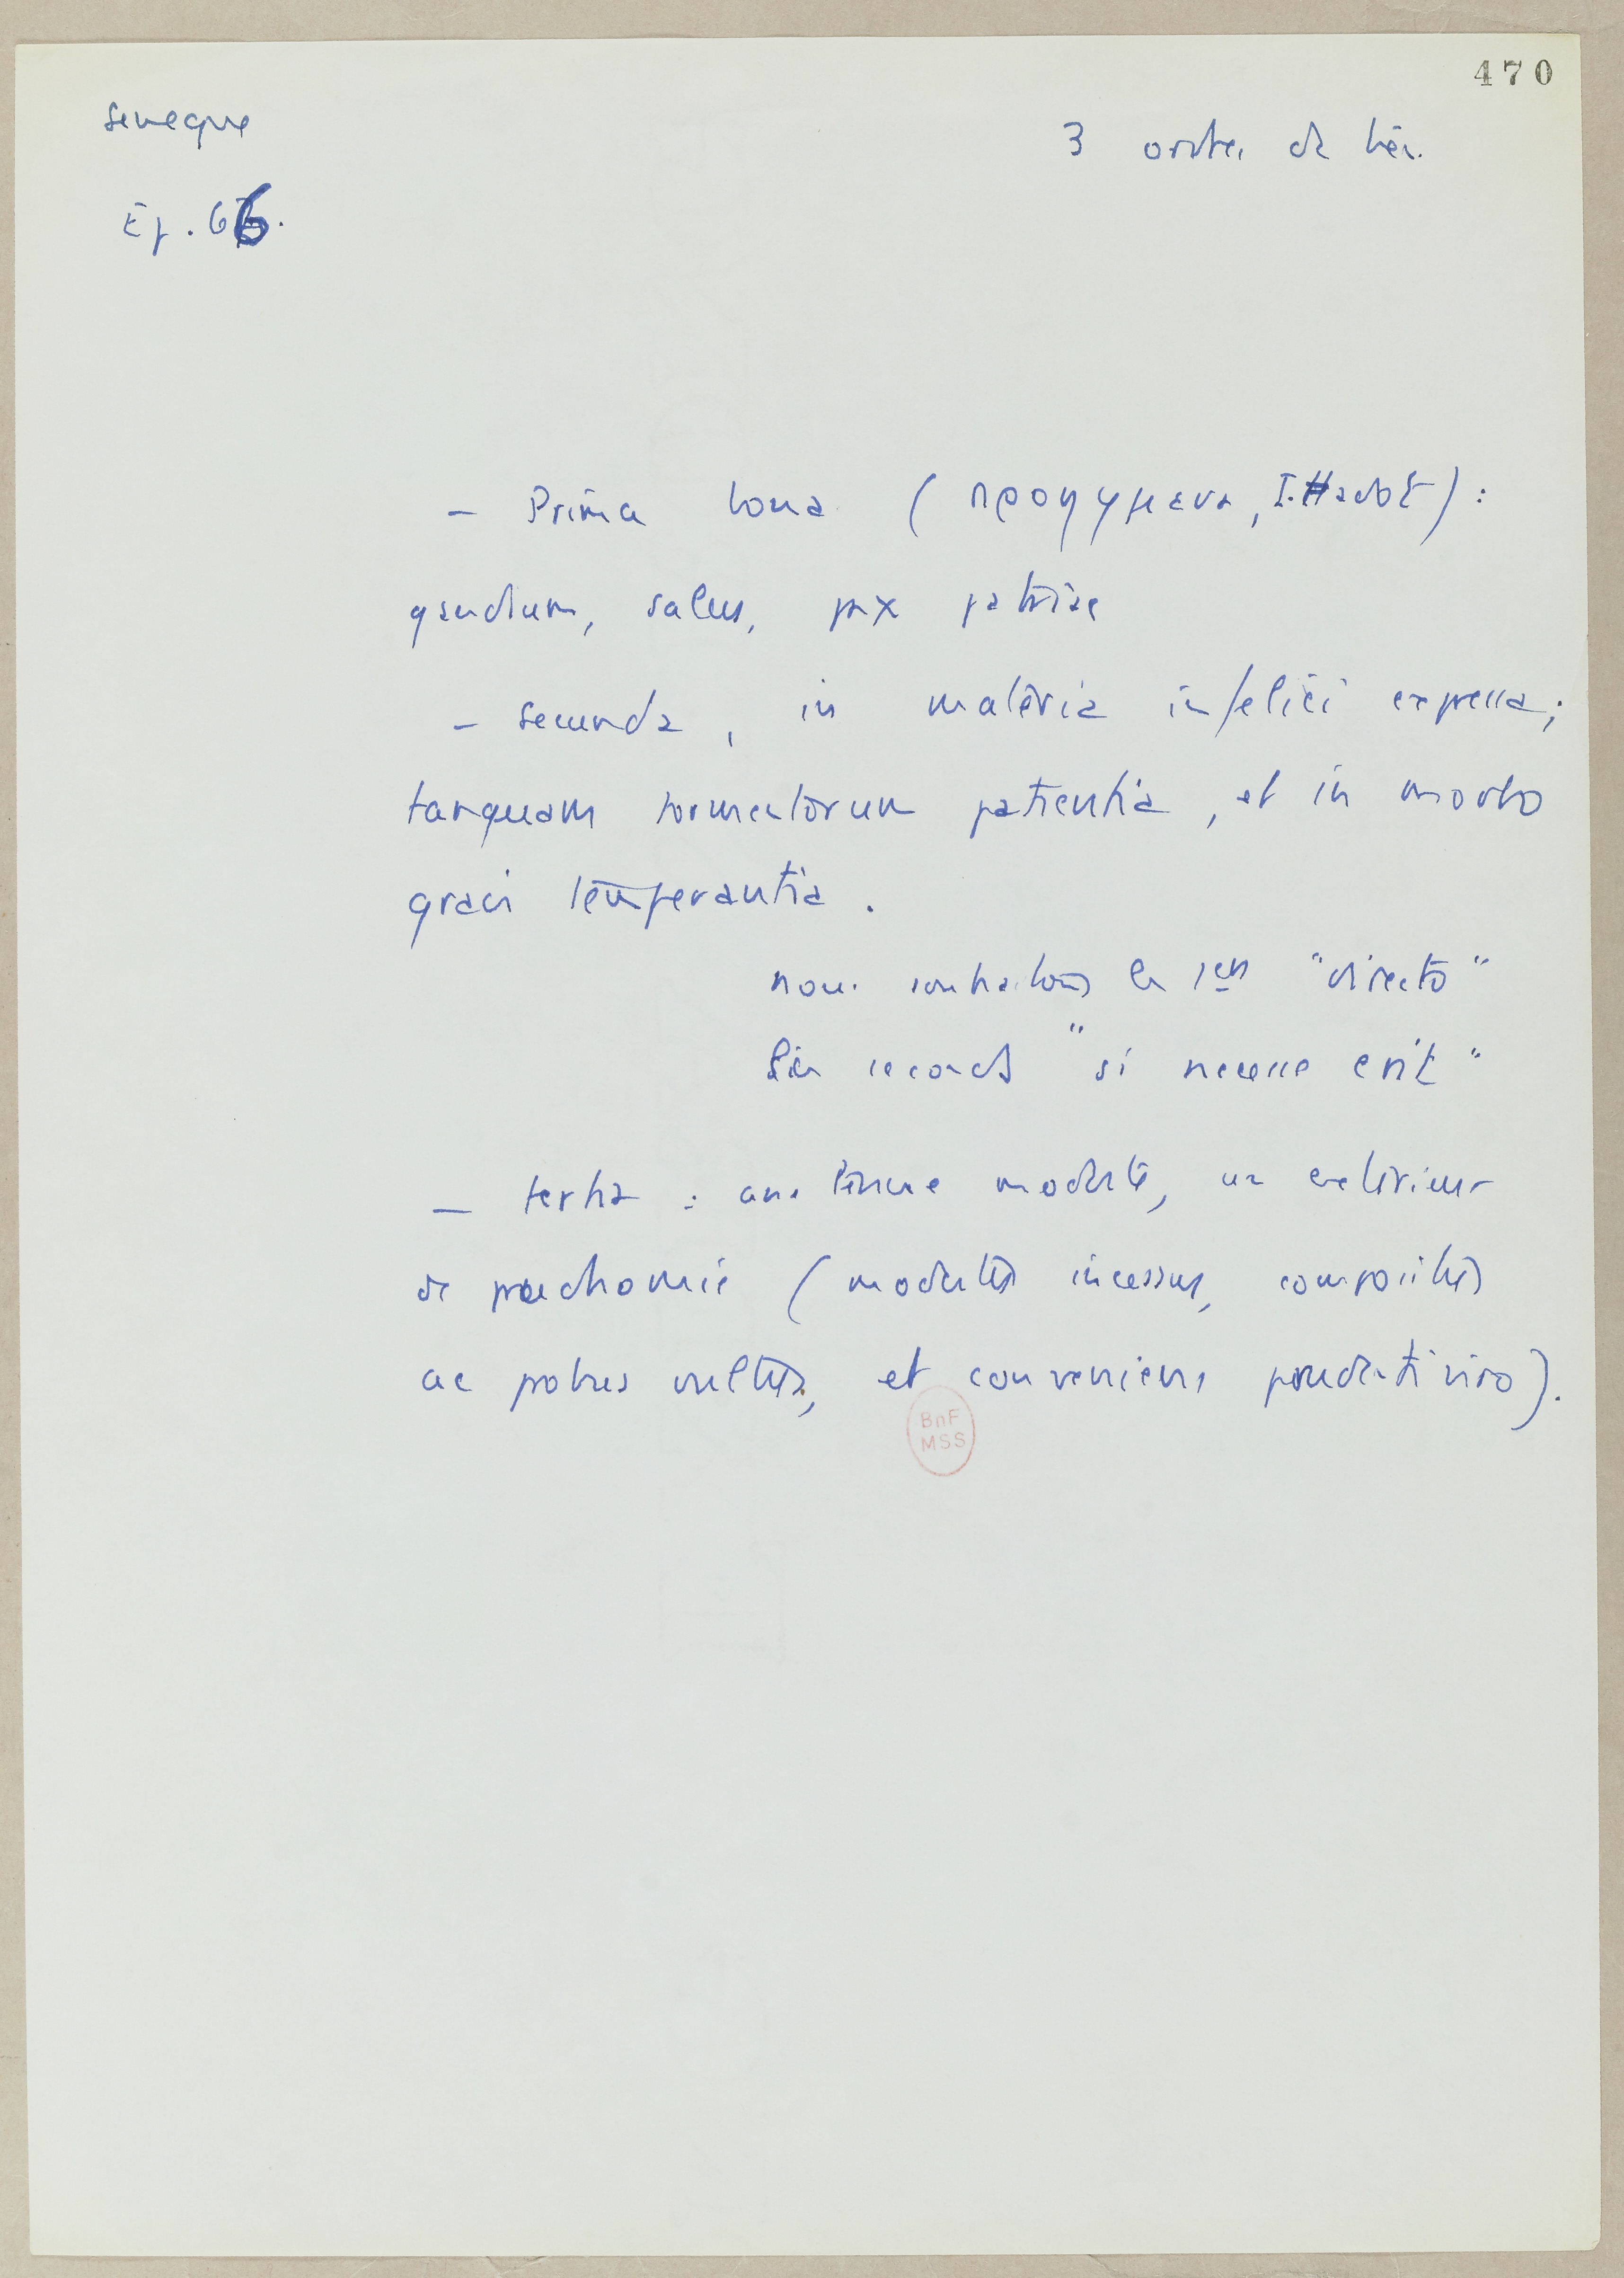 470
Seneque
3 ordres de biens.
Ep. 66.
– Prima bona (προηγμενα, I. Hadot) :
gaudium, salus, pax patriae
– secunda, in materia infelici expressa ;
tanquam tormentorum patientia, et in morbo
gravi temperantia.
nous souhaitons les 1ers "directo"
les seconds "si necesse erit"
– tertia : une tenue modeste, un extérieur
de prudhomie (modestus incessus, compositus
ac probus vultus, et conveniens prudenti viro).
BnF
MSS